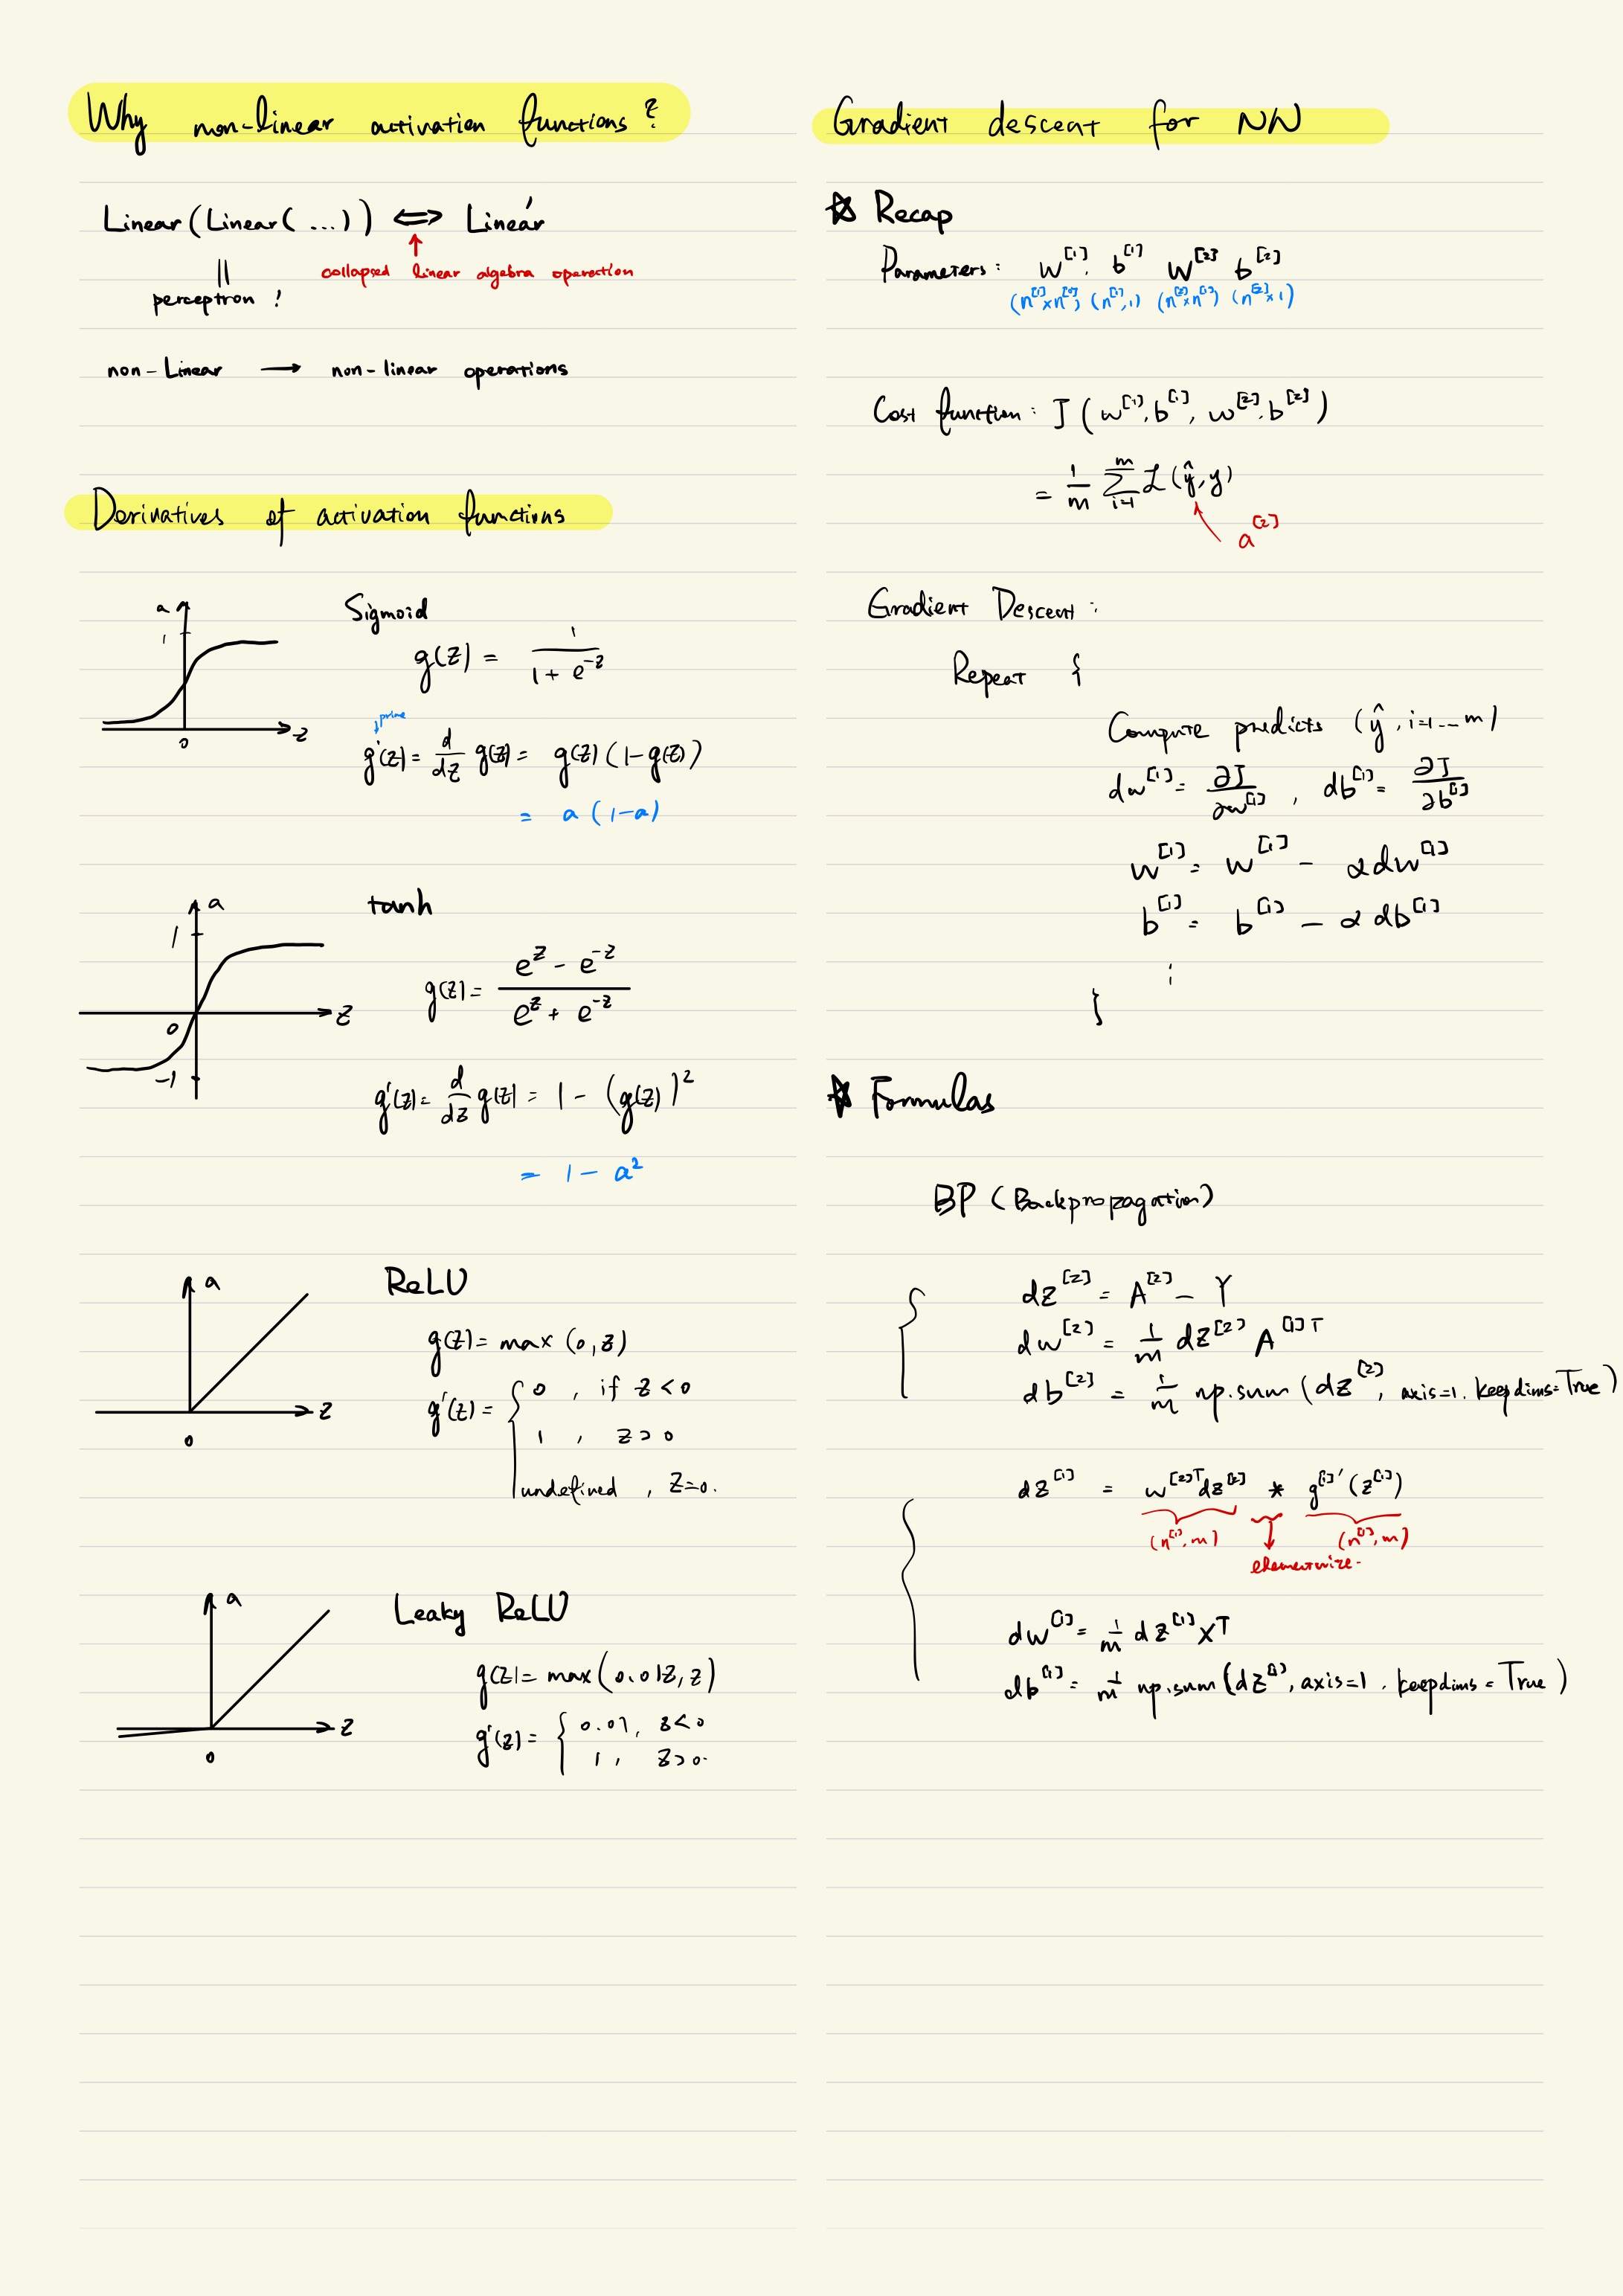 Why non-linear activation functions?
Linear(Linear(...)) ⟺ Linear'
||
collapsed linear algebra operation
perceptron !
non-Linear → non-linear operations
Derivatives of activation functions
a
1
0
z
Sigmoid
g(z) = 1 / (1 + e^{-z})
prime
g'(z) = d/dz g(z) = g(z)(1-g(z))
= a(1-a)
a
1
0
-1
z
tanh
g(z) = (e^z - e^{-z}) / (e^z + e^{-z})
g'(z) = d/dz g(z) = 1 - (g(z))^2
= 1 - a^2
a
z
0
ReLU
g(z) = max(0, z)
g'(z) = { 0 , if z < 0
1 , z > 0
undefined , z=0.
a
z
0
Leaky ReLU
g(z) = max(0.01z, z)
g'(z) = { 0.01, z<0
1, z>0.
Gradient descent for NN
☆ Recap
Parameters: w^[1]. b^[1] w^[2] b^[2]
(n^[1]×n^[0]) (n^[1],1) (n^[2]×n^[1]) (n^[2]×1)
Cost function: J(w^[1], b^[1], w^[2], b^[2])
= 1/m Σ_{i=1}^{m} L(ŷ, y)
a^[2]
Gradient Descent:
Repeat {
Compute predicts (ŷ, i=1...m)
dw^[1] = ∂J/∂w^[1] , db^[1] = ∂J/∂b^[1]
w^[1] = w^[1] - αdw^[1]
b^[1] = b^[1] - αdb^[1]
⋮
}
☆ Formulas
BP (Backpropagation)
dz^[2] = A^[2] - Y
dw^[2] = 1/m dz^[2] A^[1]T
db^[2] = 1/m np.sum(dz^[2], axis=1. keepdims=True)
dz^[1] = w^[2]T dz^[2] * g^[1]'(z^[1])
(n^[1], m) (n^[1], m)
elementwize.
dw^[1] = 1/m dz^[1] X^T
db^[1] = 1/m np.sum(dz^[1], axis=1. keepdims=True)